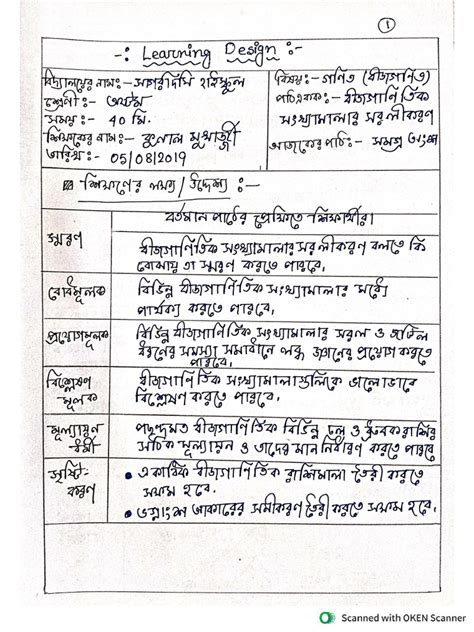 1
-: Learning Design :-
বিদ্যালয়ের নাম:- সাগরদিঘি হাইস্কুল
শ্রেণী:- অষ্টম
সময়:- 40 মি.
শিক্ষকের নাম:- কুনাল মুখার্জ্জী
তারিখ:- 05/08/2019
বিষয়:- গণিত (বীজগণিত)
পাঠ একক:- বীজগাণিতিক
সংখ্যামালার সরলীকরণ
আজকের পাঠ:- সমগ্র অংশ
শিখনের লক্ষ্য / উদ্দেশ্য :-
বর্তমান পাঠের প্রেক্ষিতে শিক্ষার্থীরা
স্মরণ
বীজগাণিতিক সংখ্যামালার সরলীকরণ বলতে কি
বোঝায় তা স্মরণ করতে পারবে।
বোধমূলক
বিভিন্ন বীজগাণিতিক সংখ্যামালার মধ্যে
পার্থক্য করতে পারবে।
প্রয়োগমূলক
বিভিন্ন বীজগাণিতিক সংখ্যামালার সরল ও জটিল
ধরনের সমস্যা সমাধানে লব্ধ জ্ঞানের প্রয়োগ করতে
পারবে।
বিশ্লেষণ
মূলক
বীজগাণিতিক সংখ্যামালাগুলিকে ভালোভাবে
বিশ্লেষণ করতে পারবে।
মূল্যায়ন
ধর্মী
পছন্দমত বীজগাণিতিক বিভিন্ন চল ও ধ্রুবক রাশির
সঠিক মূল্যায়ন ও তাদের মান নির্ধারণ করতে পারবে
সৃষ্টি-
করণ
• একাধিক বীজগাণিতিক রাশিমালা তৈরী করতে
সক্ষম হবে।
• ভগ্নাংশ আকারের সমীকরণ তৈরী করতে সক্ষম হবে।
Scanned with OKEN Scanner